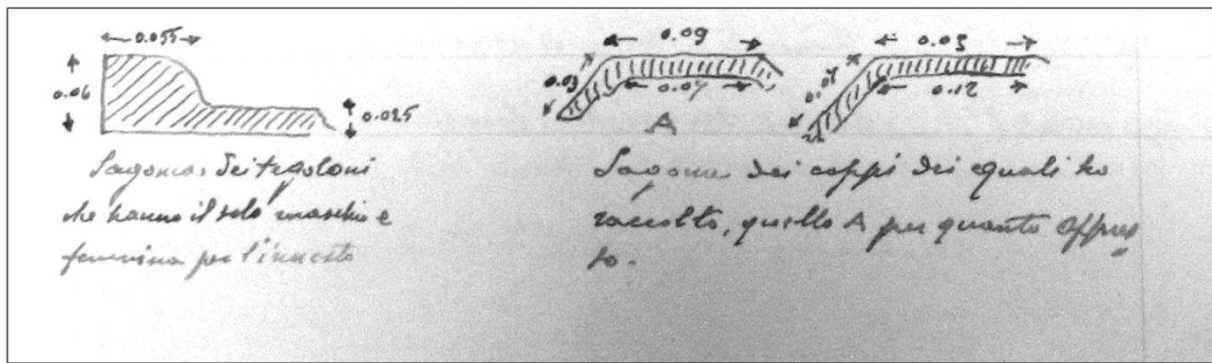 0.055
0.06
0.025
Sagoma dei tegoloni
che hanno il solo maschio e
femmina per l'innesto
0.09
0.03
0.07
A
0.03
0.12
Sagome dei coppi dei quali ho
raccolto, quello A per quanto appres
so.